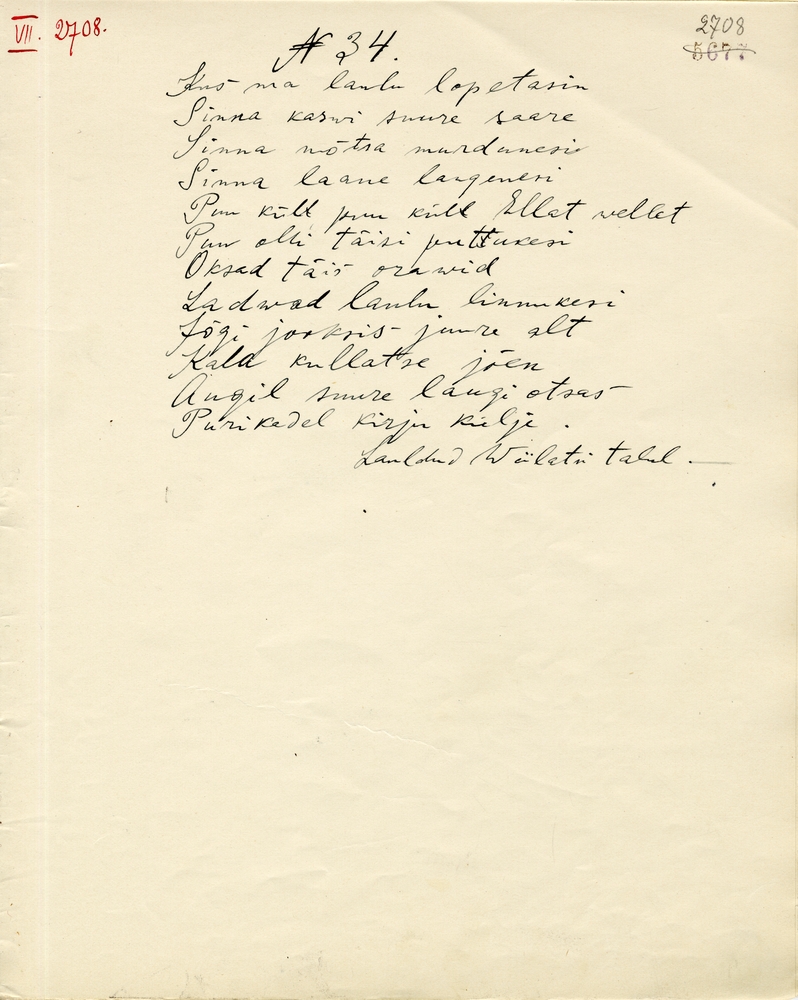 VII. 2708.
2708
5677
N 34.
Kus ma laulu lopetasin
Sinna kaswi suure saare
Sinna mõtsa murdunesi
Sinna laane laugenesi
Puu küll puu küll Ellat vellet
Puu olli täisi puttukesi
Oksad täis orawid
Ladwad laulu linnukesi
Jõgi jooksis juure alt
Kala kullatse jõen
Augil suure laugi otsas
Purikadel kirju külje.
Lauldud talul.